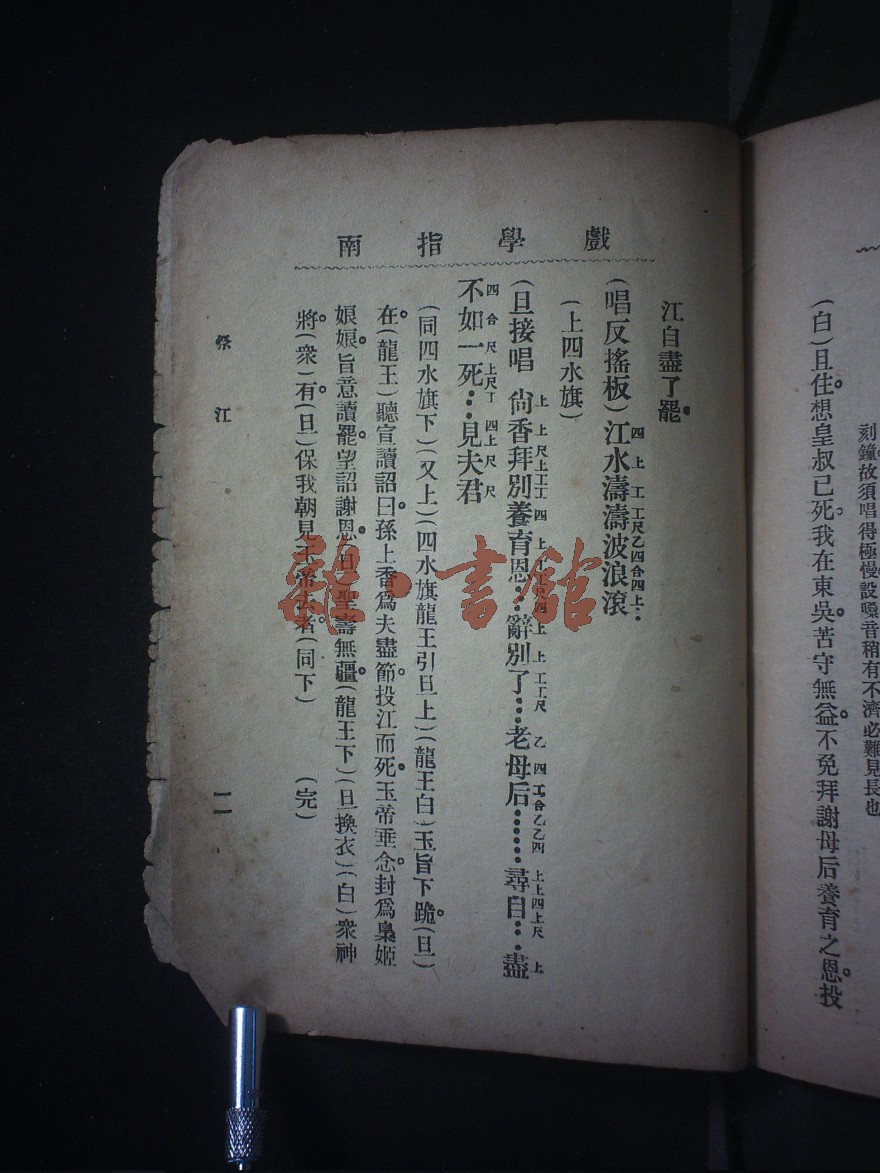 刻鐘故須唱得極慢設嗓音稍有不濟必難見長也
(白)且住想皇叔已死我在東吳苦守無益不免拜謝母后養育之恩投
戲學指南
江自盡了罷
(唱反搖板)江水濤濤波浪滾
四上工工尺乙四合四上
(上四水旗)
(旦接唱 尙香拜別養育恩‥辭別了…老母后……尋自…盡
不如一死…見夫君
(同四水旗下)(又上)(四水旗龍王引旦上)(龍王白)玉旨下跪(旦)
在(龍王)聽宣讀詔曰孫上香爲夫盡節投江而死玉帝垂念封爲梟姬
娘娘旨意讀罷望詔謝恩(旦)聖壽無疆(龍王下)(旦換衣)(白)衆神
將(衆)有(旦)保我朝見玉帝去者(同下) (完)
祭江
一一
龍書館